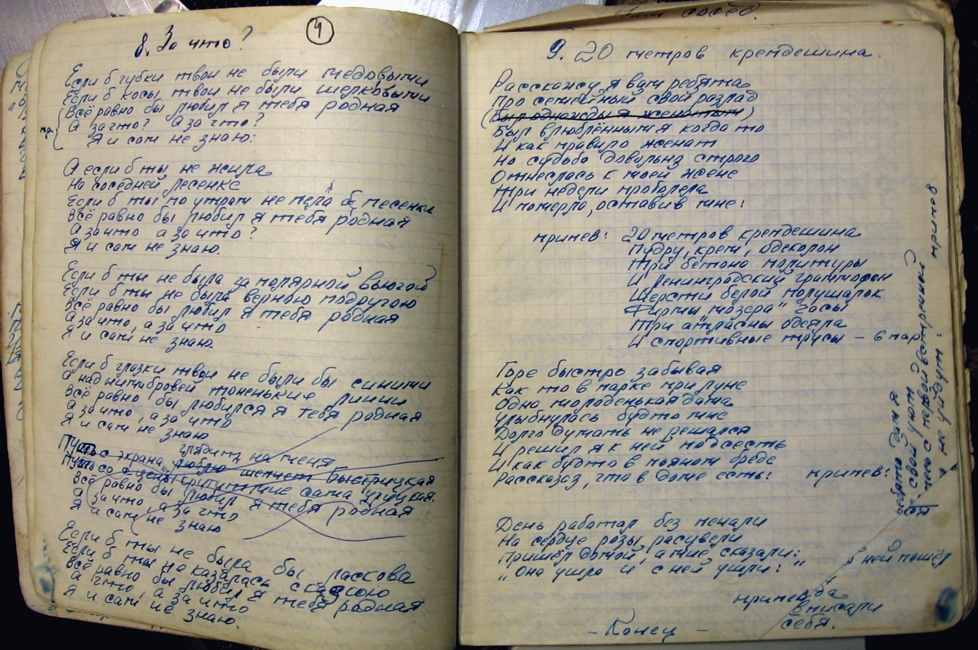 8. За что?
4
Если б губки твои не были медовыми
Если б косы твои не были шелковыми
Всё равно бы любил я тебя родная
пр. А за что? А за что?
Я и сам не знаю:
А если б ты не жила
На соседней лесенке
Если б ты по утрам не пела б песенки
Всё равно бы любил я тебя родная
А за что а за что?
Я и сам не знаю.
Если б ты не была за полярной вьюгой
Если б ты не была верною подругою
Всё равно бы любил я тебя родная
А за что, а за что
Я и сам не знаю.
Если б глазки твои не были бы синими
А над ними бровей тоненькие линии
Всё равно бы любился я тебя родная
А за что, а за что
Я и сам не знаю
Пусть с экрана глядит на меня Быстрицкая
Всё равно бы любил я тебя родная
А за что, а за что
Я и сам не знаю
Если б ты не была бы ласкова
Если б ты не казалась сказкою
Всё равно бы любил я тебя родная
А за что, а за что
Я и сам не знаю.
9. 20 метров крепдешина.
Расскажу я вам ребята
Про семейный свой разлад
(Был однажды я женатым)
Был влюблённым я когда то
И как правило женат
Но судьба довольна строго
Отнеслась к моей жене
Три недели проболела
И померла, оставив мне:
припев: 20 метров крепдешина
Пудру, крем, одеколон
Три бетона политуры
И Ленинградский граммофон
Шерсти белой полушалок
Фирмы "Мозера" часы
Три атласны одеяла
И спортивные трусы – 6 пар
Горе быстро забывая
Как то в парке при луне
Одна молоденькая дама
Улыбнулась будто мне
Долго думать не решался
И решил я к ней подсесть
И как будто в пьяном бреде
Рассказал, что в доме есть: припев:
День работал без печали
На сердце розы расцвели
Пришёл домой, а мне сказали:
"Она ушла и с ней ушли:"
припев
вписали
себя.
- Конец -